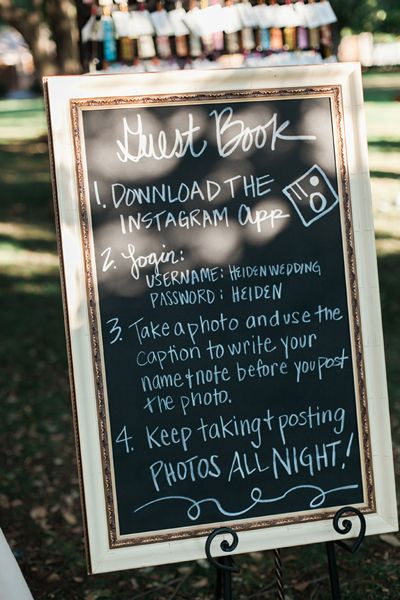 Guest Book
1. DOWNLOAD THE
INSTAGRAM app
2. Login:
USERNAME: HEIDENWEDDING
PASSWORD: HEIDEN
3. Take a photo and use the
caption to write your
name + note before you post
the photo.
4. Keep taking + posting
PHOTOS ALL NIGHT!